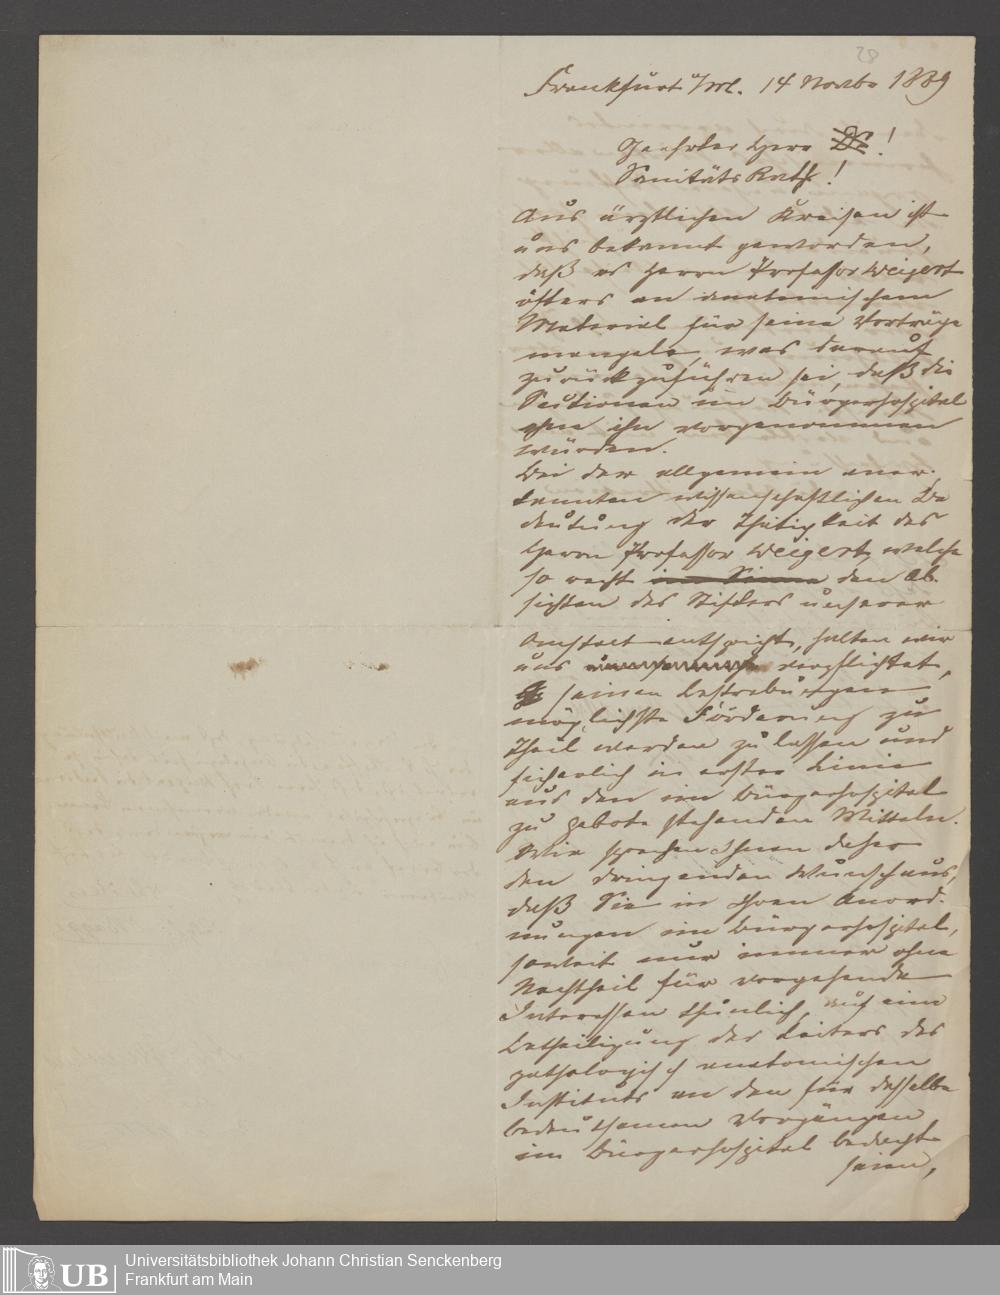 28
Frankfurt a/M. 14 Novbr 1889
Geehrter Herr Dr!
SanitätsRath!
Aus ärztlichen Kreisen ist
uns bekannt geworden,
daß es Herrn Professor Weigert
öfters an anatomischem
Material für seine Vorträge
mangele, was darauf
zurückzuführen sei, daß die
Sectionen im Bürgerhospital
ohne ihn vorgenommen
würden.
Bei der allgemein aner-
kannten wissenschaftlichen Be
deutung der Thätigkeit des
Herrn Professor Weigert, welche
so recht im Sinne den Ab-
sichten des Stifters unserer
Anstalt entspricht, halten wir
uns verpflichtet,
seinen Bestrebungen
möglichste Förderung zu
Theil werden zu lassen und
sicherlich in erster Linie
aus den im Bürgerhospital
zu Gebote stehenden Mitteln.
Wir sprechen Ihnen daher
den dringenden Wunsch aus,
daß Sie in Ihren Anord-
nungen im Bürgerhospital,
soweit nur immer ohne
Nachtheil für vorgehende
Interessen thunlich, auf eine
Betheiligung des Leiters des
pathologisch anatomischen
Instituts an den für dasselbe
bedeutsamen Vorgängen
im Bürgerhospital bedacht
seien,
UB
Universitätsbibliothek Johann Christian Senckenberg
Frankfurt am Main